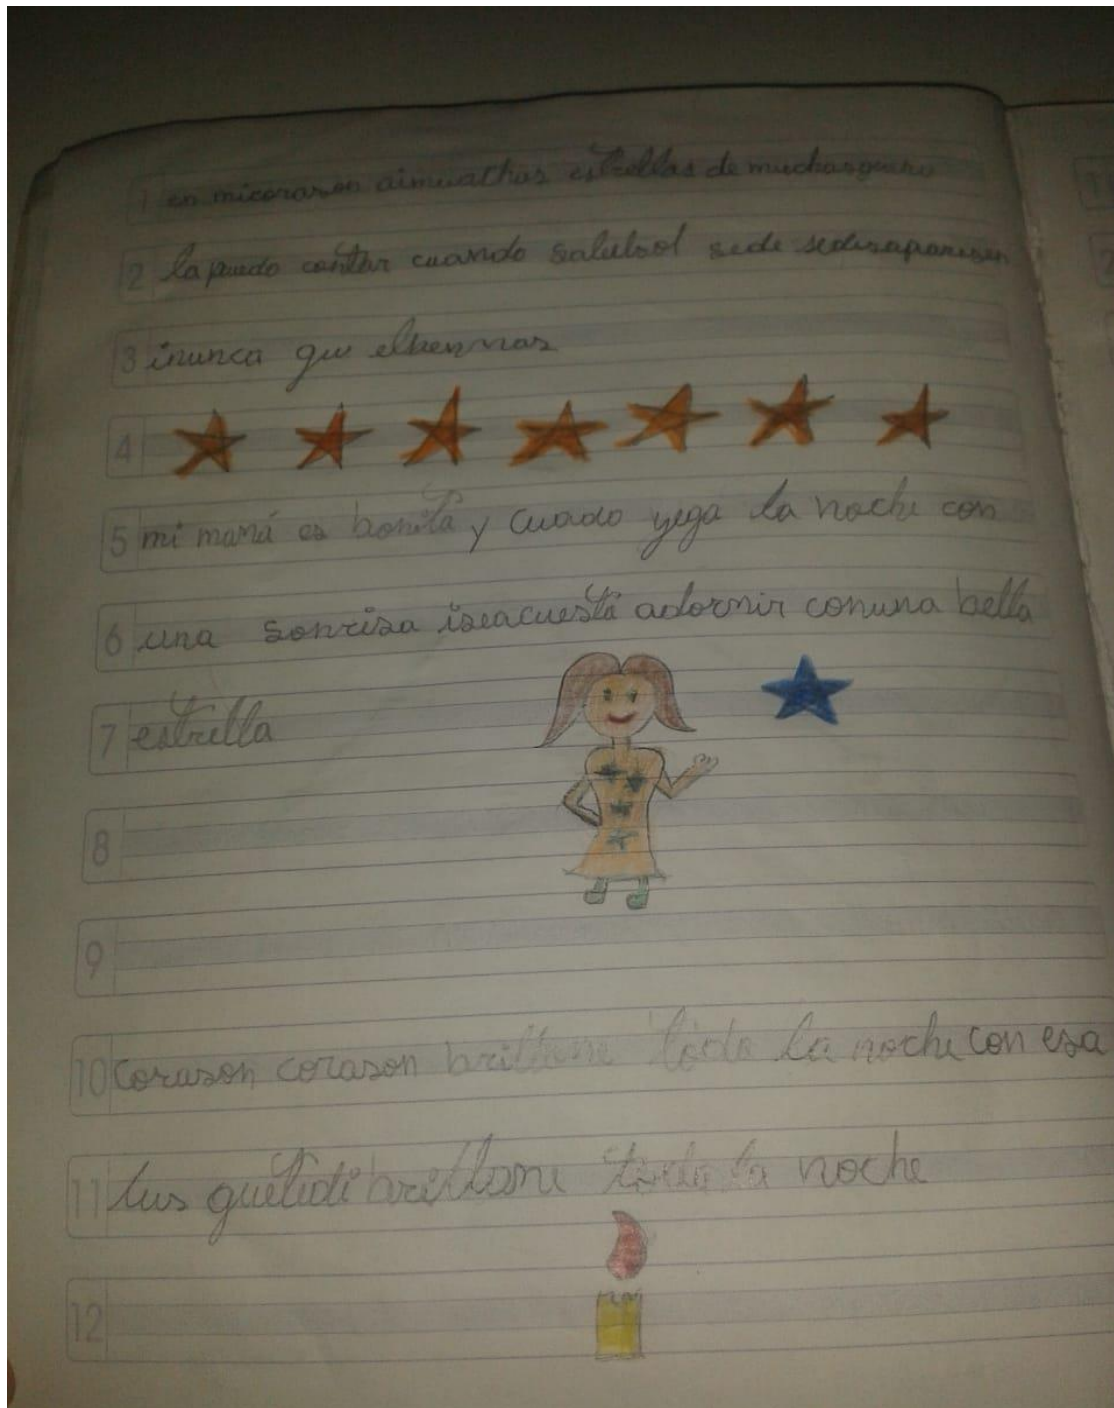 1 en micorason aimuathas estrellas de muchas
2 la puedo contar cuando salulsol sede sedesaparesen
3 inunca
4
5 mi mamá es bonita y cuado yega la noche con
6 una sonriza iseacuesta adormir conuna bella
7 estrella
8
9
10 corason corason brillame toda la noche con esa
11 lus quetidi brillame toda la noche
12